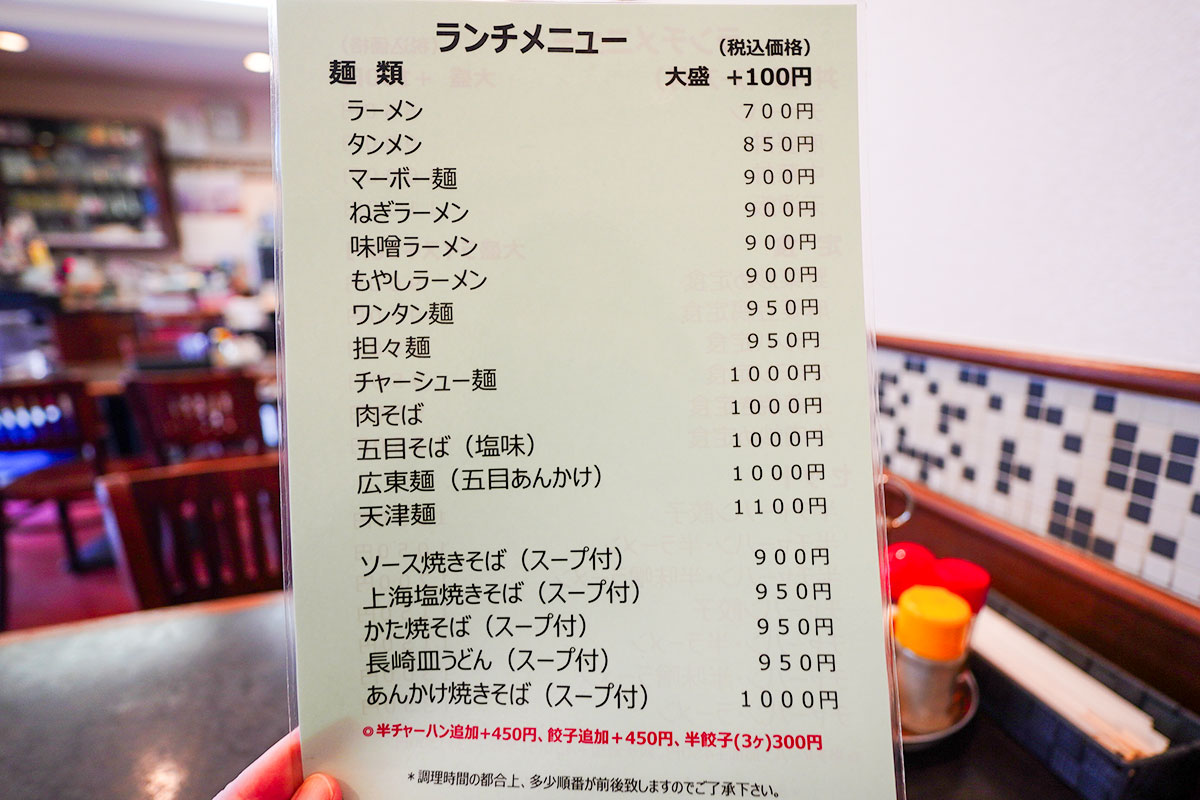 ランチメニュー
(税込価格)
麺 類 大盛 +100円
ラーメン 700円
タンメン 850円
マーボー麺 900円
ねぎラーメン 900円
味噌ラーメン 900円
もやしラーメン 900円
ワンタン麺 950円
担々麺 950円
チャーシュー麺 1000円
肉そば 1000円
五目そば（塩味） 1000円
広東麺（五目あんかけ） 1000円
天津麺 1100円
ソース焼きそば（スープ付） 900円
上海塩焼きそば（スープ付） 950円
かた焼そば（スープ付） 950円
長崎皿うどん（スープ付） 950円
あんかけ焼きそば（スープ付） 1000円
◎半チャーハン追加+450円、餃子追加+450円、半餃子(3ヶ)300円
＊調理時間の都合上、多少順番が前後致しますのでご了承下さい。